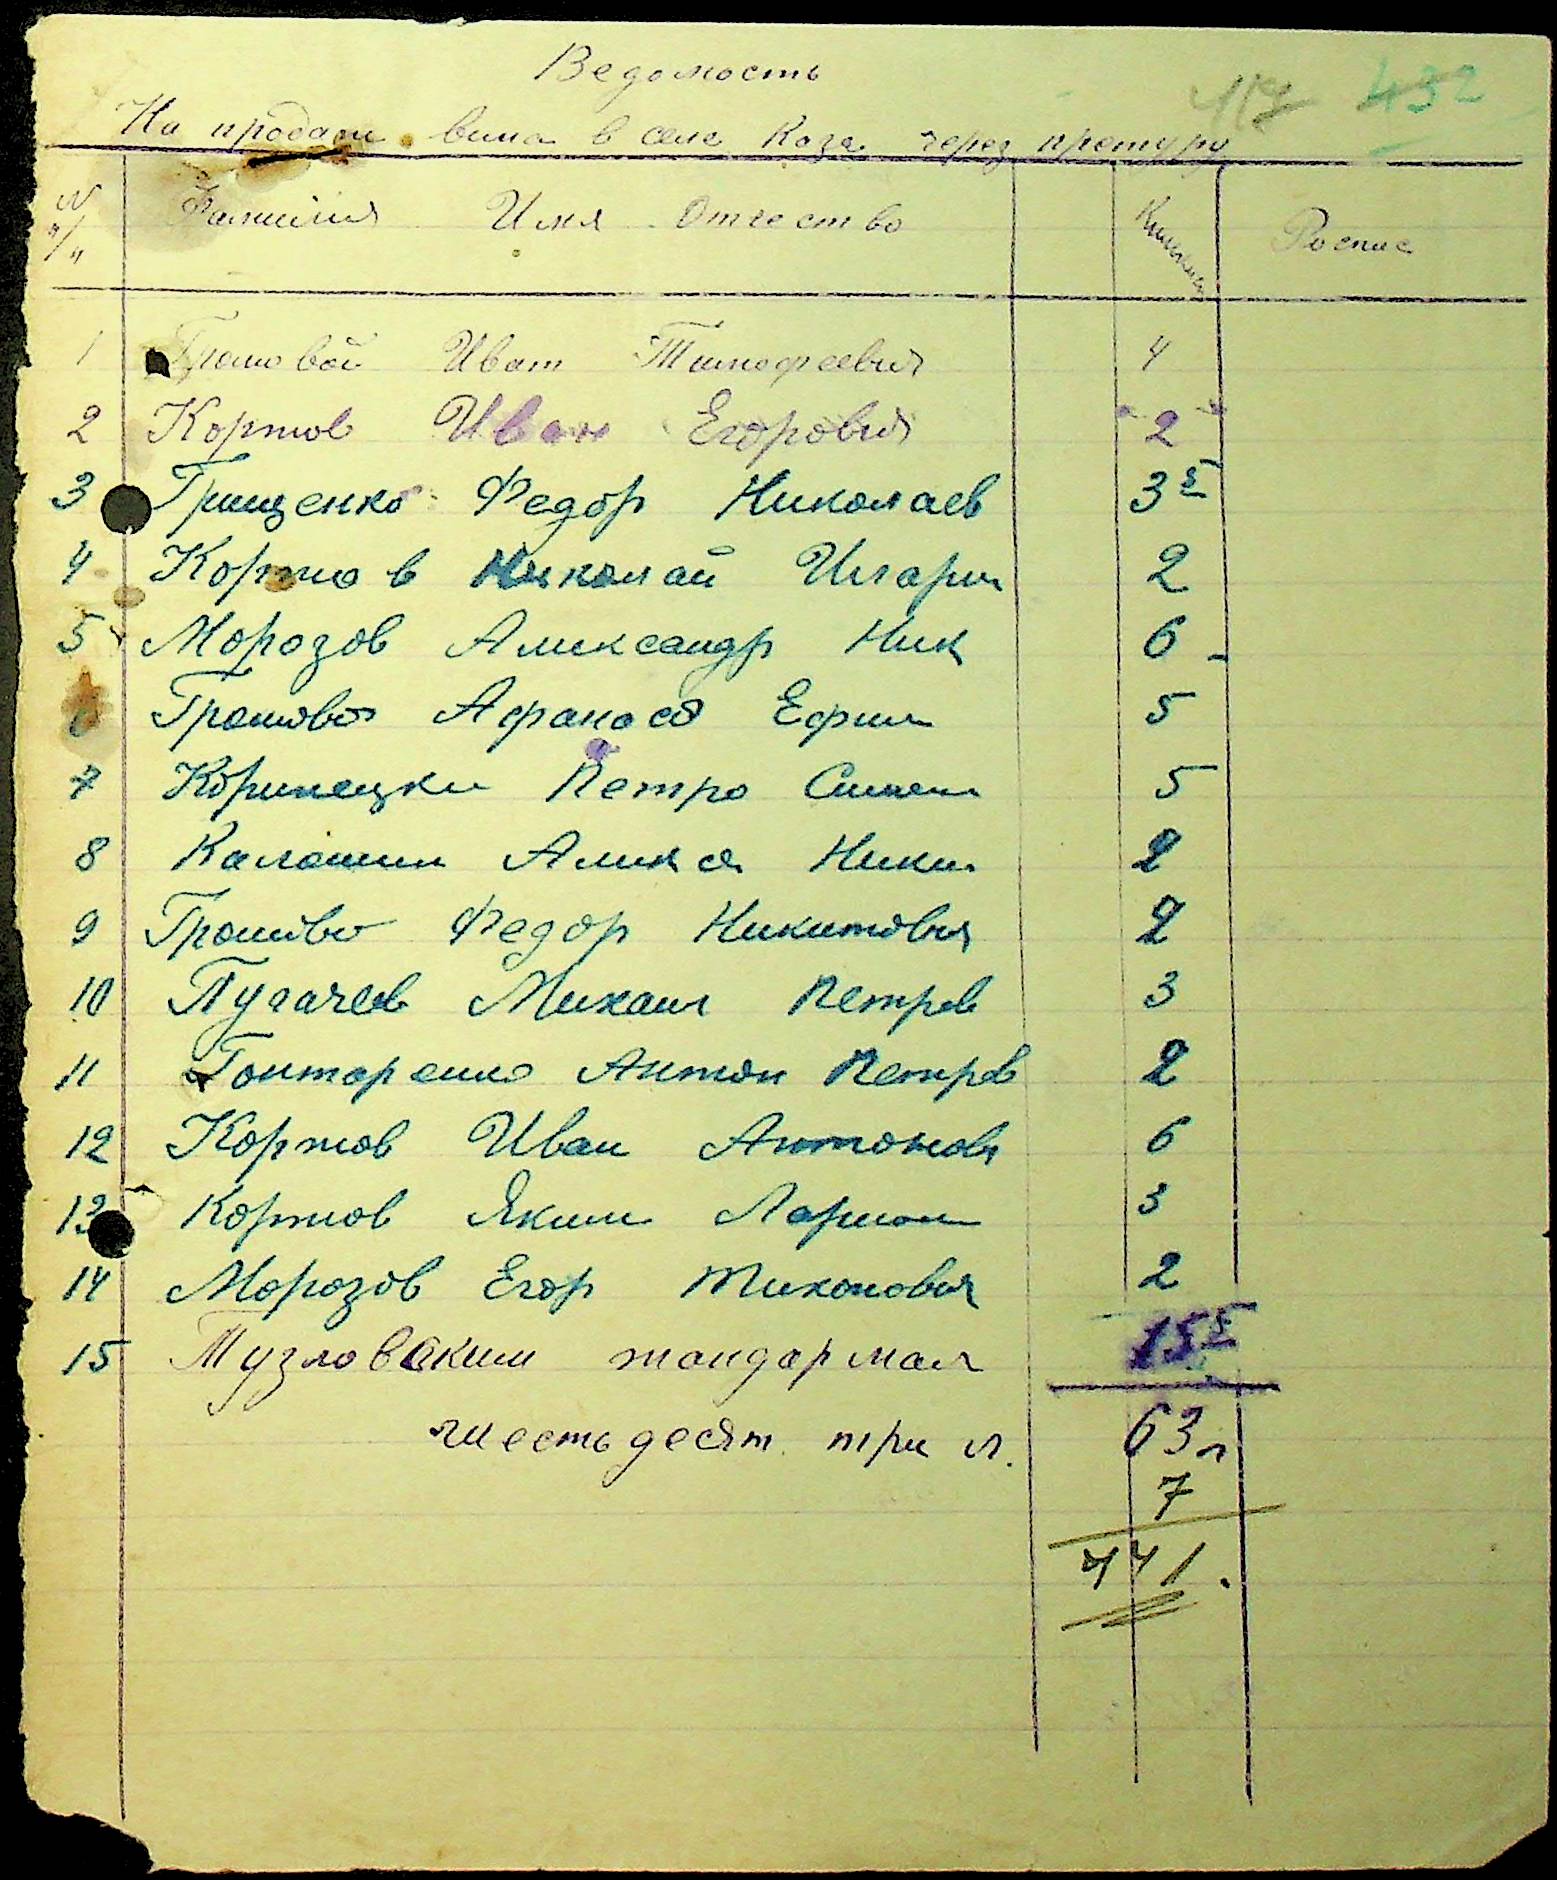 Ведомость
432
На продажи вина в селе Коза через претуру
N п/п Фамилия Имя Отчество Роспис
1 Громовой Иван Тимофеевич 4
2 Кортов Иван Егорович 2
3 Грищенко Федор Николаев 3 5
4 Кортов Николай Илари 2
5 Морозов Александр Ник 6
6 Громово Афанась Ефим 5
7 Петро Симон 5
8 Калашин Никит 2
9 Громово Федор Никитович 2
10 Пугачев Михаил Петров 3
11 Гонтаренко Антон Петров 2
12 Кортов Иван Антонович 6
13 Кортов Яким Ларион 3
14 Морозов Егор Тихонович 2
15 Тузловским жандармам 15 5
шестьдесят три л. 63 л
7
441.